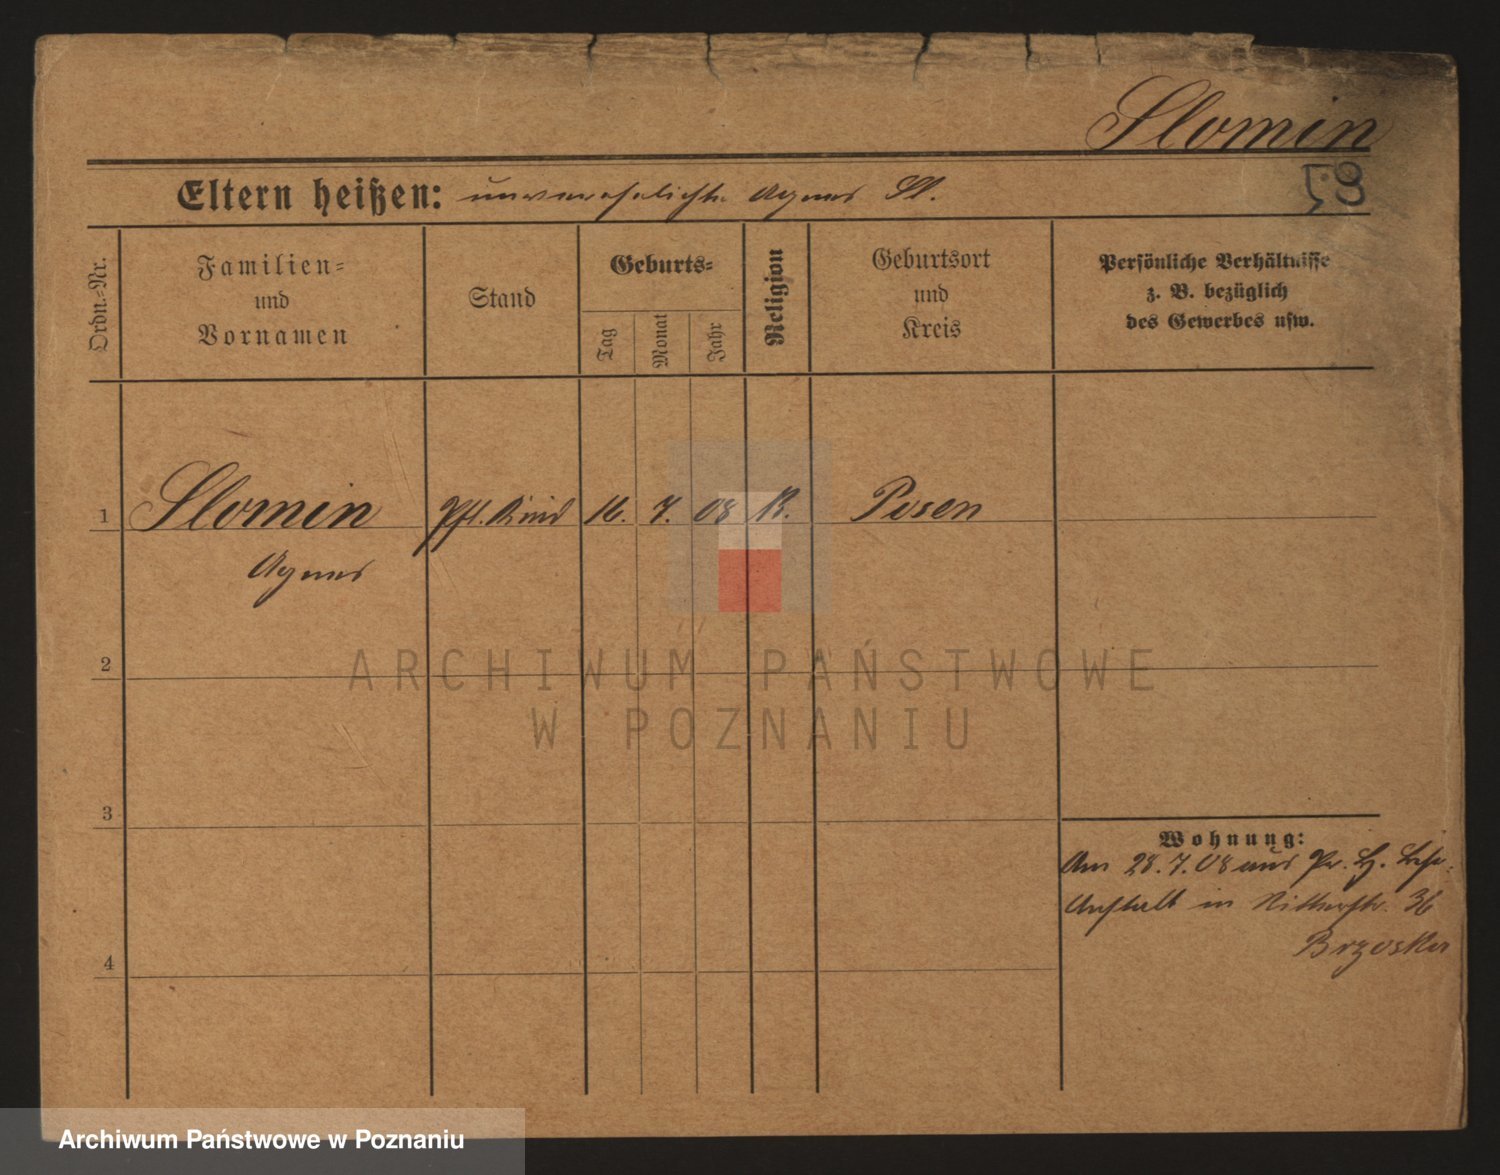 Slomin
58
Eltern heißen: unverehelichte Agnes Sl.
Ordn.-Nr.
Familien-
und
Vornamen
Stand
Geburts-
Tag
Monat
Jahr
Religion
Geburtsort
und
Kreis
Persönliche Verhältnisse
z. B. bezüglich
des Gewerbes usw.
1 Slomin Pfl. Kind 16. 7. 08 K. Posen
Agnes
2
3
4
Wohnung:
Am 28.7.08 aus Pr. H.
Anstalt in Ritterstr. 36
Brzoska
ARCHIWUM PAŃSTWOWE
W POZNANIU
Archiwum Państwowe w Poznaniu